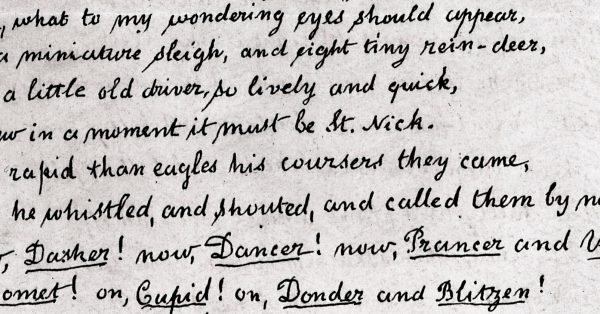 , what to my wondering eyes should appear,
a miniature sleigh, and eight tiny rein-deer,
a little old driver, so lively and quick,
w in a moment it must be St. Nick.
rapid than eagles his coursers they came,
he whistled, and shouted, and called them by n
, Dasher! now, Dancer! now, Prancer and V
omet! on, Cupid! on, Donder and Blitzen!